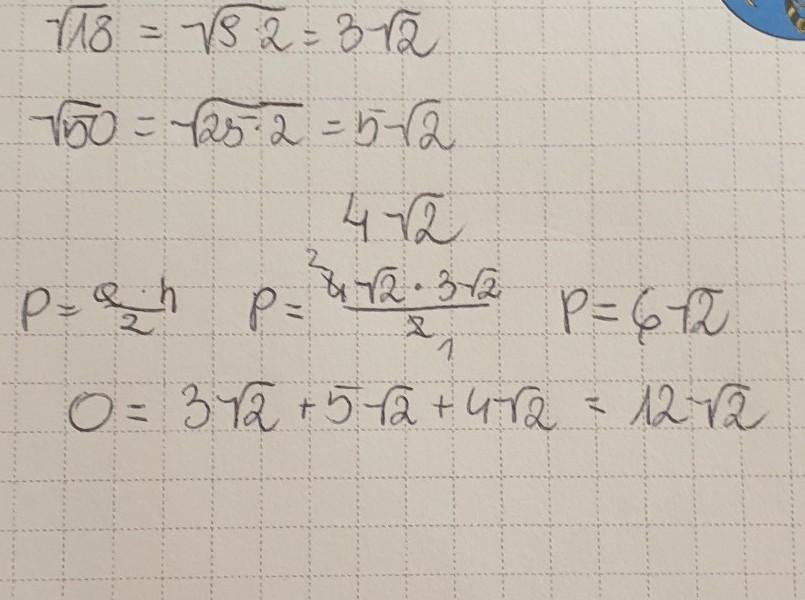 √18 = √9·2 = 3√2
√50 = √25·2 = 5√2
4√2
P = a·h/2 P = 2 4√2 · 3√2 / 2 1 P = 6√2
O = 3√2 + 5√2 + 4√2 = 12√2